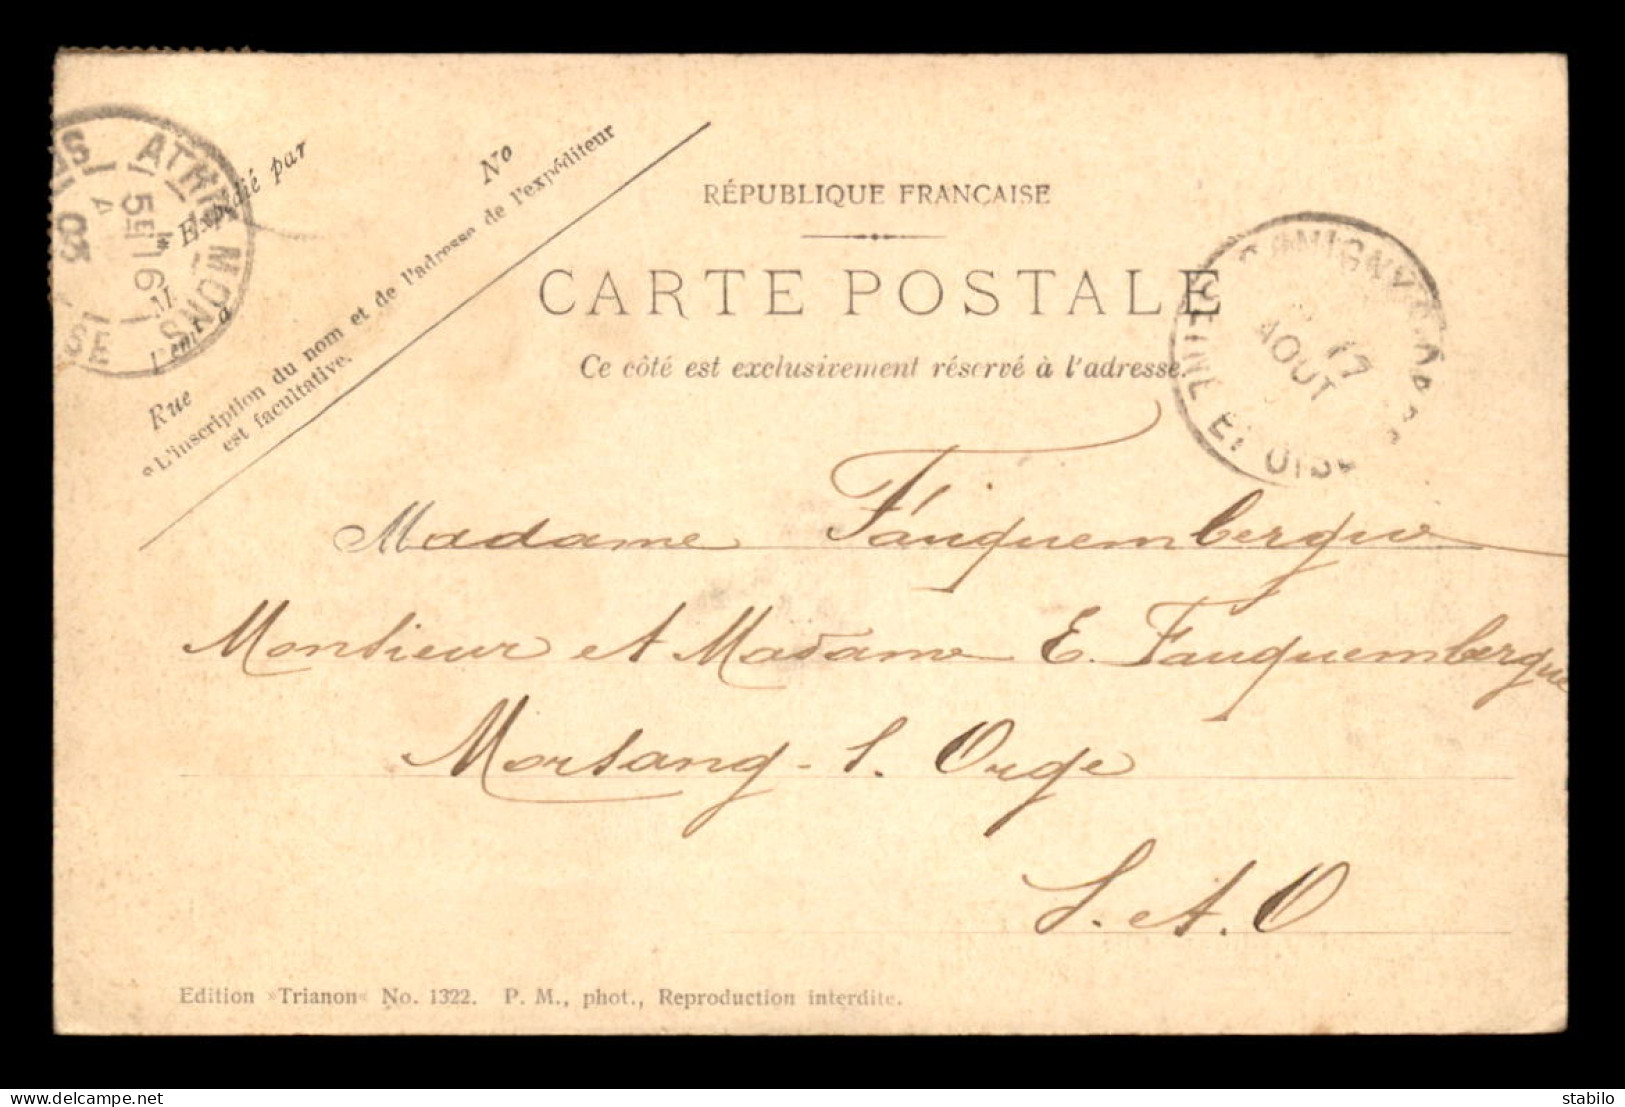 Expédié par
No
Rue
«L'inscription du nom et de l'adresse de l'expéditeur
est facultative.
RÉPUBLIQUE FRANÇAISE
CARTE POSTALE
Ce côté est exclusivement réservé à l'adresse.
ATHIS MONS
5E 16
03
17
AOUT
SEINE ET OISE
Madame Fauquembergue
Monsieur et Madame E. Fauquembergue
Morsang-s. Orge
S. et. O
Edition »Trianon« No. 1322. P. M., phot., Reproduction interdite.
delcampe.net
stabilo